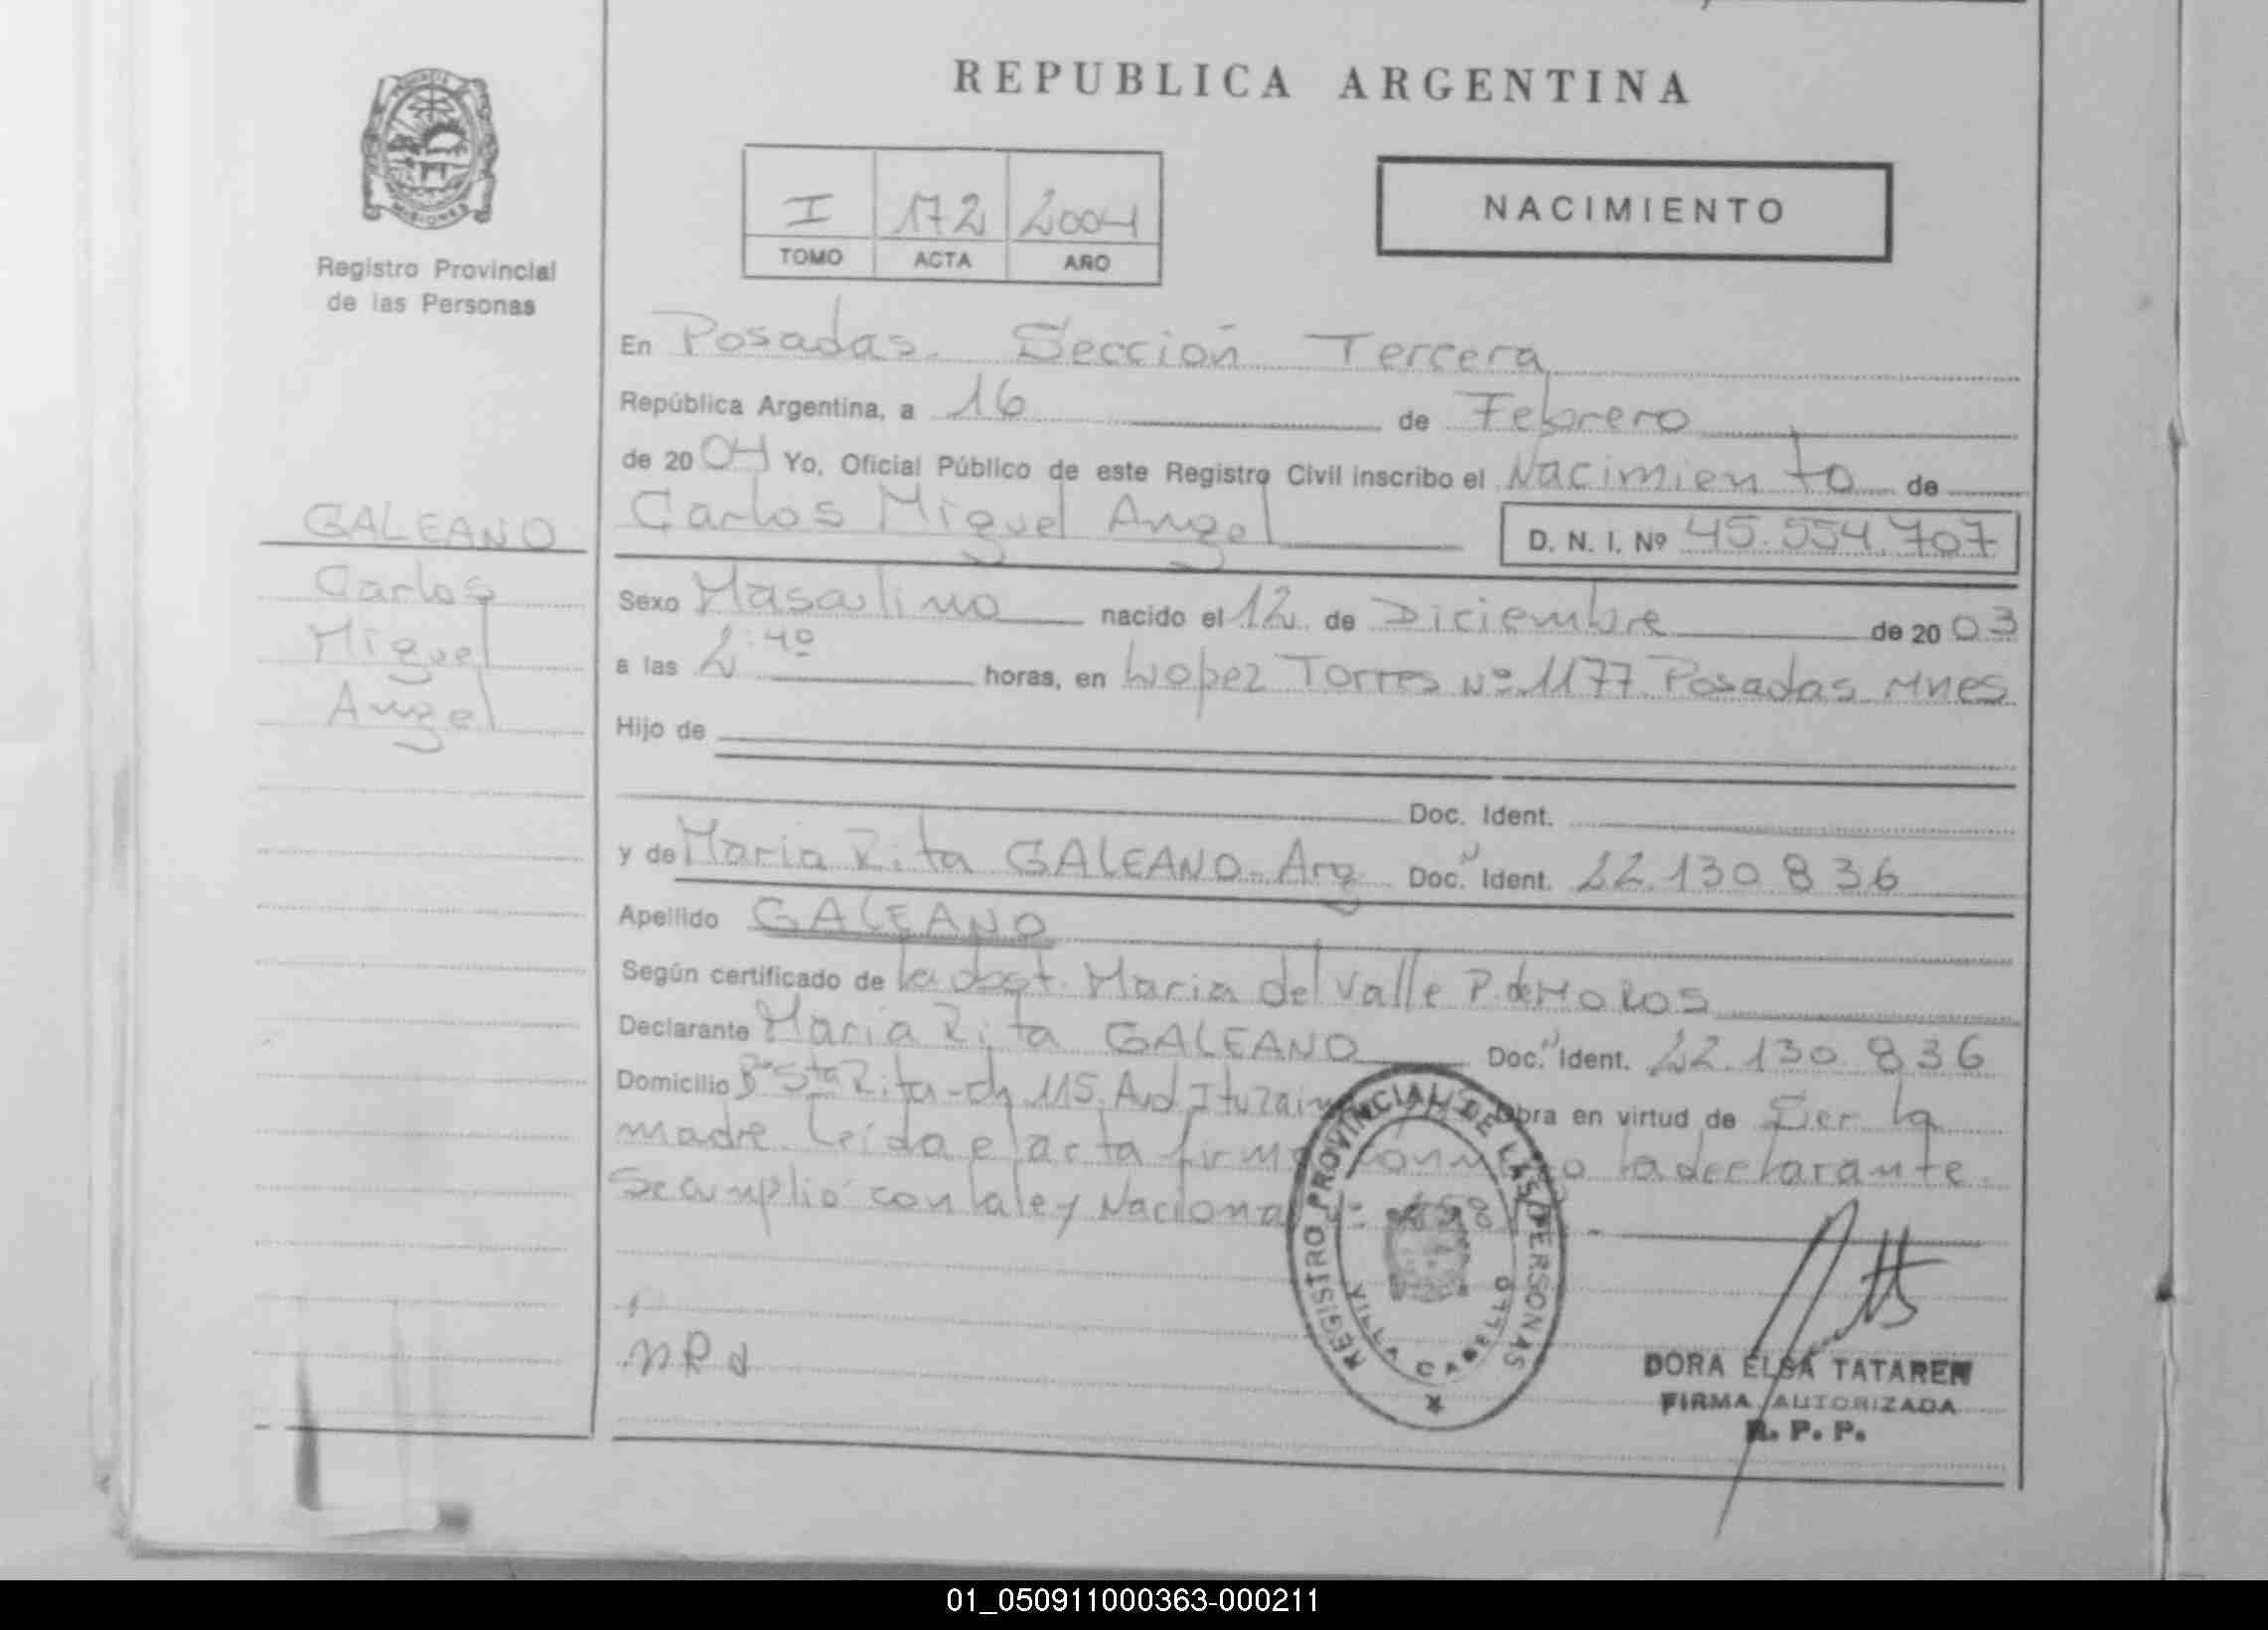 REPUBLICA ARGENTINA
MISIONES
Registro Provincial
de las Personas
I 172 2004
TOMO ACTA AÑO
NACIMIENTO
En Posadas. Sección Tercera
República Argentina, a 16 de Febrero
de 2004 Yo, Oficial Público de este Registro Civil inscribo el Nacimiento de
Carlos Miguel Angel D. N. I. Nº 45.554.707
GALEANO
Carlos
Miguel
Angel
Sexo Masculino nacido el 12 de Diciembre de 2003
a las 2.40 horas, en Lopez Torres Nº 1177 Posadas Mnes
Hijo de
Doc. Ident.
y de Maria Rita GALEANO. Arg Doc. Ident. 22.130.836
Apellido GALEANO
Según certificado de la obst. Maria del Valle P. de
Declarante Maria Rita GALEANO Doc. Ident. 22.130.836
Domicilio Bº Sta Rita - ch 115. Avd Obra en virtud de Ser la
madre. Leída el acta firma conmigo la declarante.
Se cumplió con la ley Nacional
REGISTRO PROVINCIAL DE LAS PERSONAS
VILLA CABELLO
DORA ELSA TATAREN
FIRMA AUTORIZADA
R. P. P.
01_050911000363-000211